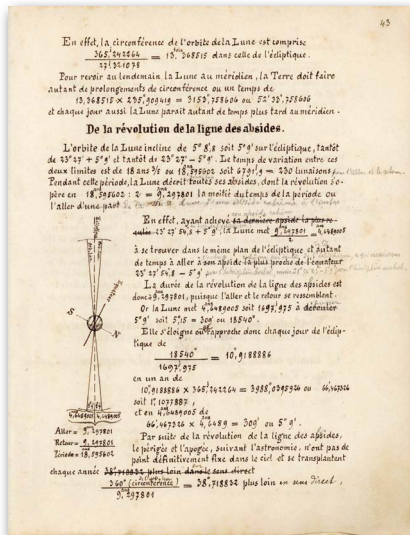 43
En effet, la circonférence de l'orbite de la Lune est comprise
365,242264 / 27,321078 = 13,368515 dans celle de l'écliptique.
Pour revoir au lendemain la Lune au méridien, la Terre doit faire
autant de prolongements de circonférence ou un temps de
13,368515 × 235,909419 = 3153,758606 ou 52' 33,758606
et chaque jour aussi la Lune paraît autant de temps plus tard au méridien.
De la révolution de la ligne des absides.
L'orbite de la Lune incline de 5° 8',8 soit 5° 9' sur l'écliptique, tantôt
de 23° 27' + 5° 9' et tantôt de 23° 27' - 5° 9'. Le temps de variation entre ces
deux limites est de 18 ans 3/5 ou 18,595602 soit 6791,9 = 230 lunaisons
Pendant cette période, la Lune décrit toutes ses absides, dont la révolution s'o-
père en 18,595602 : 2 = 9,297801 la moitié du temps de la période ou
l'aller d'une part
En effet, ayant achevé sa dernière abside la plus re-
culée 23° 27' 54,8 + 5° 9', la Lune met 9,297801 / 2 = 4,6489005
à se trouver dans le même plan de l'écliptique et autant
de temps à aller à son abside la plus proche de l'équateur
23° 27' 54,8 - 5° 9'
La durée de la révolution de la ligne des absides est
donc 9,297801, puisque l'aller et le retour se ressemblent.
Or la Lune met 4,6489005 soit 1697,975 à dérouler
5° 9' soit 5°,15 = 309' ou 18540"
Elle s'éloigne ou se rapproche donc chaque jour de l'éclip-
tique de
18540" / 1697,975 = 10,9188886
en un an de
10,9188886 × 365,242264 = 3988,0395926 ou 66,467326
soit 1°,1077887,
et en 4,6489005 de
66,467326 × 4,6489 = 309' ou 5° 9'.
Par suite de la révolution de la ligne des absides,
le périgée et l'apogée, suivant l'astronomie, n'ont pas de
point définitivement fixe dans le ciel et se transplantent
chaque année 38°,718832 plus loin dans le sens direct
360° (circonférence) / 9,297801 = 38°,718832 plus loin en sens direct,
Equateur
S
N
4,6489005 4,6489005
Aller = 9,297801
Retour = 9,297801
Période = 18,595602